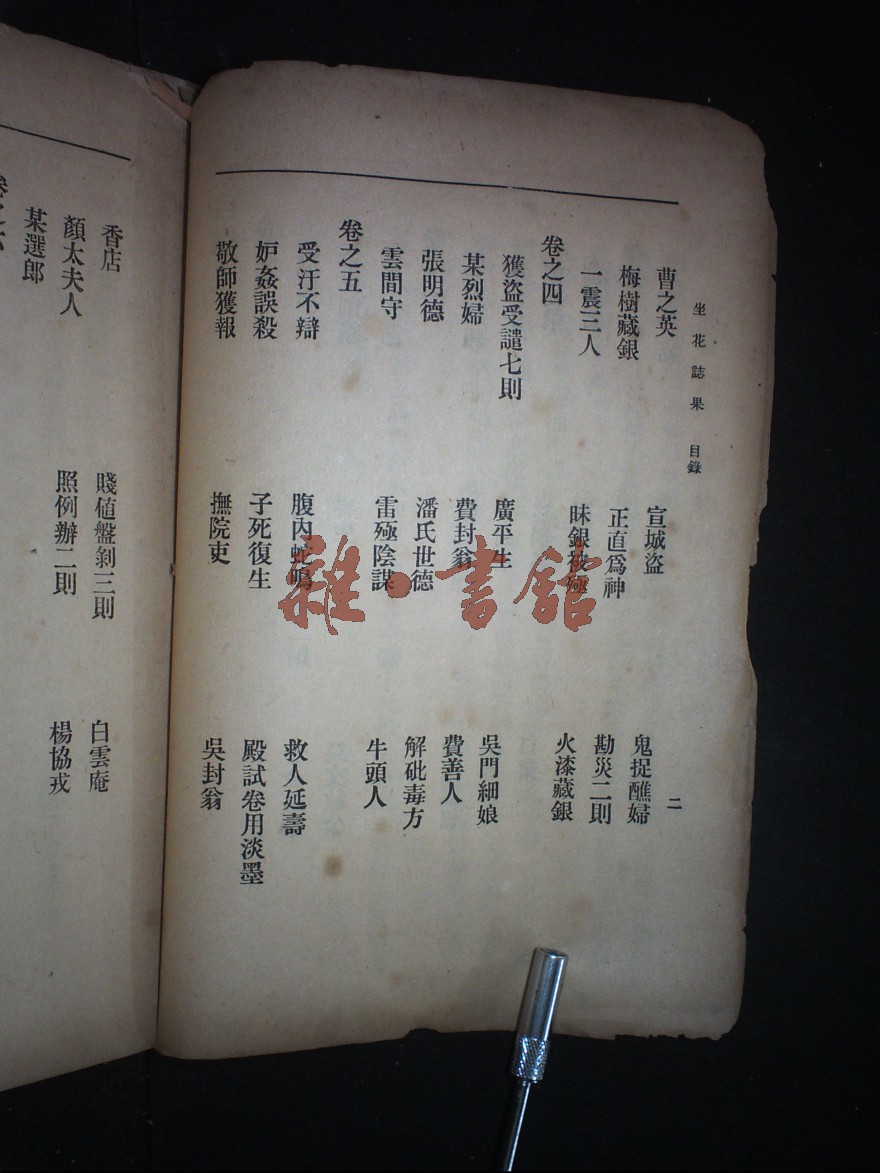 坐花誌果 目錄 二
曹之英 宣城盜 鬼捉醮婦
梅樹藏銀 正直爲神 勘災二則
一震三人 昧銀被殛 火漆藏銀
卷之四
獲盜受譴七則 廣平生 吳門細娘
某烈婦 費封翁 費善人
張明德 潘氏世德 解砒毒方
雲間守 雷殛陰謀 牛頭人
卷之五
受汙不辯 腹內蛇鳴 救人延壽
妒姦誤殺 子死復生 殿試卷用淡墨
敬師獲報 撫院吏 吳封翁
香店 賤値盤剝三則 白雲庵
顏太夫人 照例辦二則 楊協戎
某選郎
卷之六
雜·書館